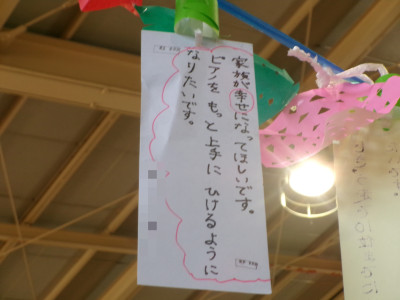 家族が幸せになってほしいです。
ピアノをもっと上手にひけるように
なりたいです。